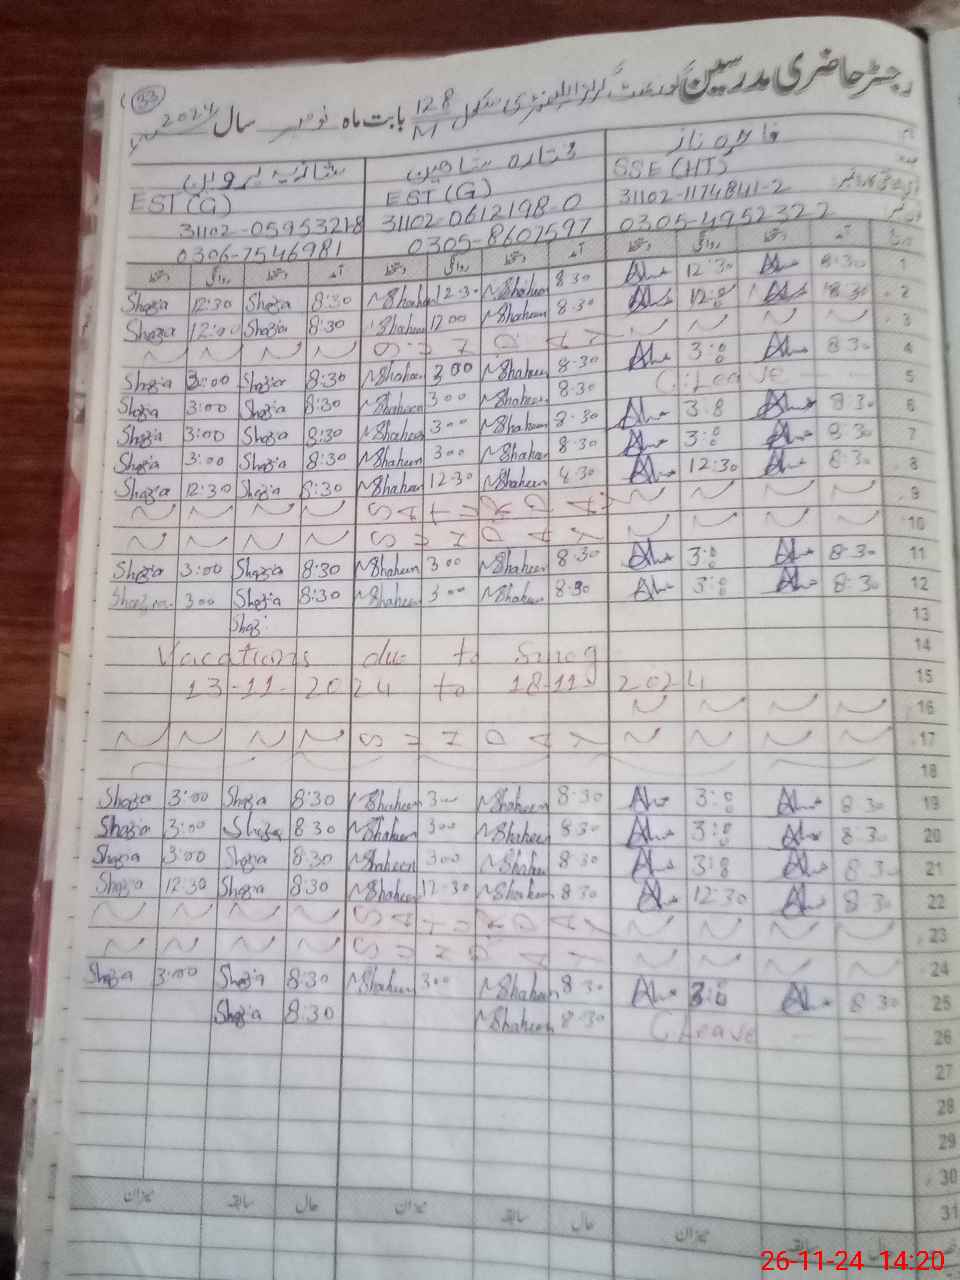 33
رجسٹر حاضری مدرسین گورنمنٹ گرلز ایلیمنٹری سکول 128/M بابت ماہ نومبر سال 2024
فاخرہ ناز
ستارہ شاہین
شازیہ پروین
SSE (HT)
EST (G)
EST (G)
31102-1174841-2
31102-0612198-0
31102-05953218
0305-4952322
0305-8607597
0306-7546981
آمد دستخط روانگی دستخط آمد دستخط روانگی دستخط آمد دستخط روانگی دستخط
1 8:30 12:30 8:30 NShaheen 12:30 NShaheen 8:30 Shazia 12:30 Shazia
2 8:30 12:0 8:30 NShaheen 1200 NShaheen 8:30 Shazia 12:00 Shazia
3 S U N D A Y
4 8:30 3:0 8:30 NShaheen 300 NShaheen 8:30 Shazia 3:00 Shazia
5 C.Leave 8:30 NShaheen 300 NShaheen 8:30 Shazia 3:00 Shazia
6 8:30 3:0 8:30 NShaheen 300 NShaheen 8:30 Shazia 3:00 Shazia
7 8:30 3:0 8:30 NShaheen 300 NShaheen 8:30 Shazia 3:00 Shazia
8 8:30 12:30 8:30 NShaheen 12:30 NShaheen 8:30 Shazia 12:30 Shazia
9 S A T U R D A Y
10 S U N D A Y
11 8:30 3:0 8:30 NShaheen 300 NShaheen 8:30 Shazia 3:00 Shazia
12 8:30 3:0 8:30 NShaheen 300 NShaheen 8:30 Shazia 300 Shazia
13 Shaz
14 Vacations due to Smog
15 13-11-2024 to 18-11-2024
16
17 S U N D A Y
18
19 8:30 3:0 8:30 NShaheen 300 NShaheen 8:30 Shazia 3:00 Shazia
20 8:30 3:0 8:30 NShaheen 300 NShaheen 8:30 Shazia 3:00 Shazia
21 8:30 3:0 8:30 NShaheen 300 NShaheen 8:30 Shazia 3:00 Shazia
22 8:30 12:30 8:30 NShaheen 12:30 NShaheen 8:30 Shazia 12:30 Shazia
23 S A T U R D A Y
24 S U N D A Y
25 8:30 3:0 8:30 NShaheen 300 NShaheen 8:30 Shazia 3:00 Shazia
26 C.Leave 8:30 NShaheen 8:30 Shazia
27
28
29
30
31
حال سابقہ میزان حال سابقہ میزان حال سابقہ میزان
26-11-24 14:20